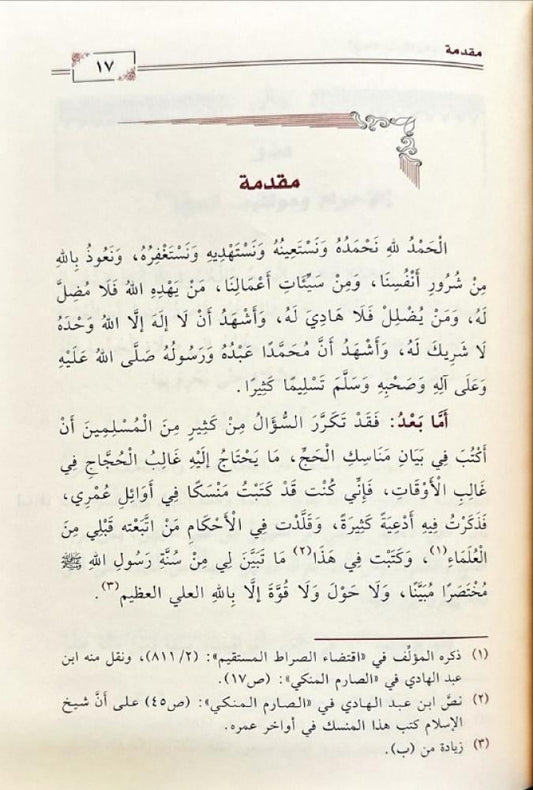 مقدمة
١٧
مقدمة
الْحَمْدُ للهِ نَحْمَدُهُ وَنَسْتَعِينُهُ وَنَسْتَهْدِيهِ وَنَسْتَغْفِرُهُ، وَنَعُوذُ بِاللهِ
مِنْ شُرُورِ أَنْفُسِنَا، وَمِنْ سَيِّئَاتِ أَعْمَالِنَا، مَنْ يَهْدِهِ اللهُ فَلَا مُضلَّ
لَهُ، وَمَنْ يُضْلِلْ فَلَا هَادِيَ لَهُ، وَأَشْهَدُ أَنْ لَا إِلَهَ إلَّا اللهُ وَحْدَهُ
لَا شَرِيكَ لَهُ، وَأَشْهَدُ أَنَّ مُحَمَّدًا عَبْدُهُ وَرَسُولُهُ صَلَّى اللهُ عَلَيْهِ
وَعَلَى آلِهِ وَصَحْبِهِ وَسَلَّمَ تَسْلِيمًا كَثِيرًا.
أَمَّا بَعْدُ: فَقَدْ تَكَرَّرَ السُّؤَالُ مِنْ كَثِيرٍ مِنَ الْمُسْلِمِينَ أَنْ
أَكْتُبَ فِي بَيَانِ مَنَاسِكِ الْحَجِّ، مَا يَحْتَاجُ إلَيْهِ غَالِبُ الْحُجَّاجِ فِي
غَالِبِ الْأَوْقَاتِ، فَإِنِّي كُنْت قَدْ كَتَبْتُ مَنْسَكًا فِي أَوَائِلِ عُمْرِي،
فَذَكَرْتُ فِيهِ أَدْعِيَةً كَثِيرَةً، وَقَلَّدْت فِي الْأَحْكَامِ مَنْ اتَّبَعْته قَبْلِي مِنَ
الْعُلَمَاءِ(١)، وَكَتَبْت فِي هَذَا(٢) مَا تَبَيَّنَ لِي مِنْ سُنَّةِ رَسُولِ اللهِ ﷺ
مُخْتَصَرًا مُبَيَّنًا، وَلَا حَوْلَ وَلَا قُوَّةَ إلَّا بِاللهِ العلي العظيم(٣).
(١) ذكره المؤلِّف في «اقتضاء الصراط المستقيم»: (٨١١/٢)، ونقل منه ابن
عبد الهادي في «الصارم المنكي»: (ص١٧).
(٢) نصّ ابن عبد الهادي في «الصارم المنكي»: (ص٤٥) على أنَّ شيخ
الإسلام كتب هذا المنسك في أواخر عمره.
(٣) زيادة من (ب).